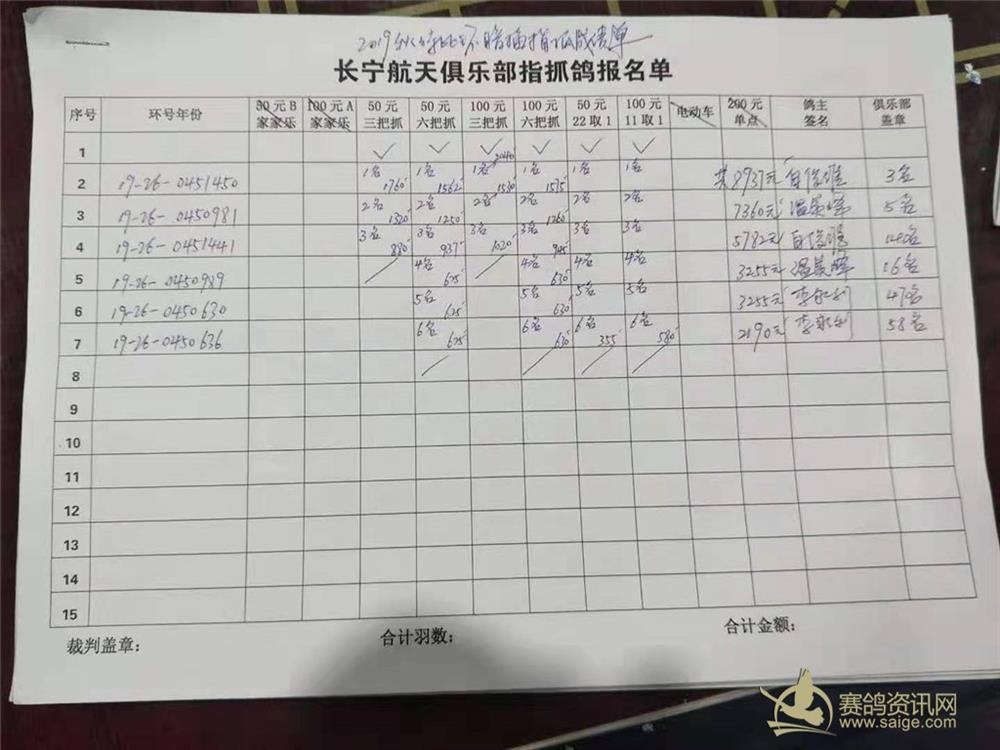 长宁航天俱乐部指抓鸽报名单
序号 环号年份 50元B家家乐 100元A家家乐 50元三把抓 50元六把抓 100元三把抓 100元六把抓 50元22取1 100元11取1 电动车 200元单点 鸽主签名 俱乐部盖章
1 ✓ ✓ ✓ ✓ ✓ ✓
2 19-26-0451450 1名 1760 1名 1562 1名 2040 1530 1名 1575 1名 1名 共8937元 3名
3 19-26-0450981 2名 1320 2名 1250 2名 2名 1260 2名 2名 7360元 5名
4 19-26-0451441 3名 880 3名 937 3名 1020 3名 945 3名 3名 5782元
5 19-26-0450989 4名 625 4名 630 4名 4名 3255元 16名
6 19-26-0450630 5名 625 5名 630 5名 5名 3255元 47名
7 19-26-0450636 6名 625 6名 630 6名 355 6名 580 2190元 58名
8
9
10
11
12
13
14
15
裁判盖章： 合计羽数： 合计金额：
赛鸽资讯网
www.saige.com